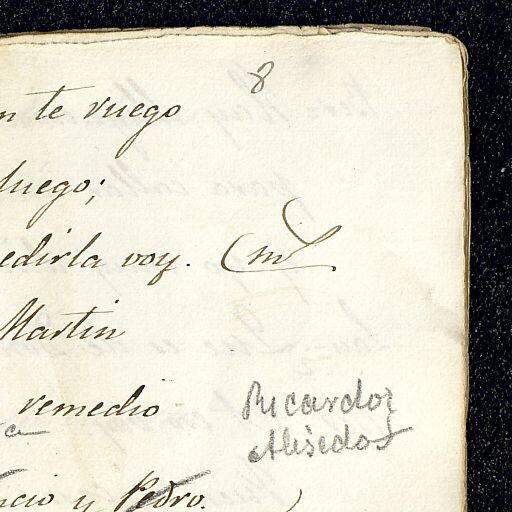 8
n te ruego
luego;
edirla voy.
Martin
remedio
Ricardo
Alisedo
ncio y Pedro.